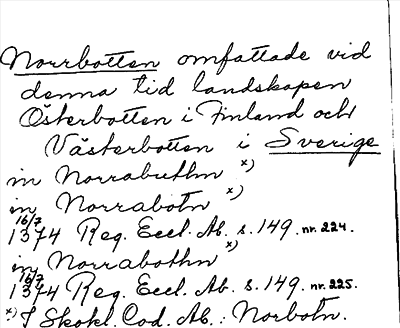 Norrbotten omfattade vid
denna tid landskapen
Österbotten i Finland och
Västerbotten i Sverige
in Norrabuthn x)
in Norrabotn x)
16/7
1374 Reg. Eccl. Ab. s. 149. nr. 224.
in Norrabothn x)
16/7
1374 Reg. Eccl. Ab. s. 149. nr. 225.
x) I Skokl. Cod. Ab.: Norbotn.